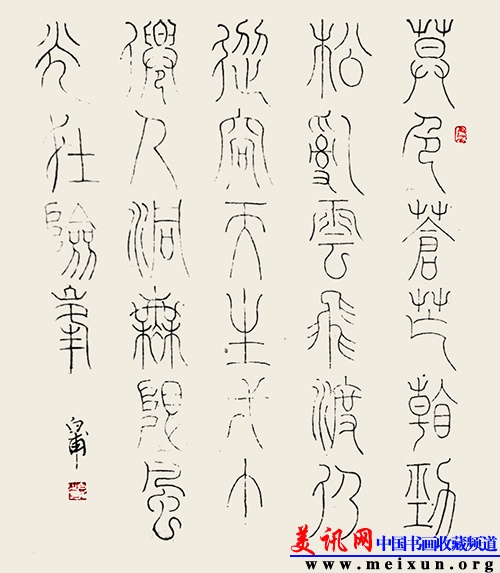 莫色蒼芒看勁
松亂雲飛渡仍
從容天生弌个
僊人洞無限風
光在險峯
美讯网 中国书画收藏频道
www.meixun.org